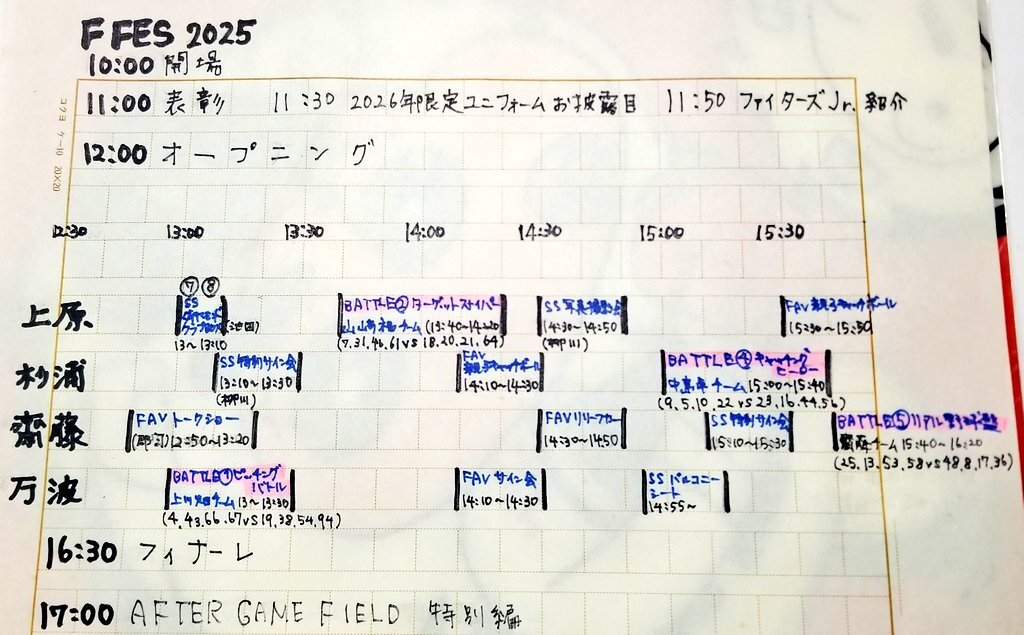 F FES 2025
10:00 開場
11:00 表彰 11:30 2026年限定ユニフォームお披露目 11:50 ファイターズJr. 紹介
12:00 オープニング
コクヨ ケー10 20×20
12:30 13:00 13:30 14:00 14:30 15:00 15:30
⑦ ⑧
上原
SS
グラブトス (池田)
13~13:10
BATTLE② ターゲットスナイパー
山﨑福チーム (13:40~14:20)
(7.31.46.61 vs 18.20.21.64)
SS 写真撮影会
14:30~14:50
(柳川)
FAV 親子キャッチボール
15:30~15:50
杉浦
SS 特別サイン会
13:10~13:30
(柳川)
FAV
親子キャッチボール
14:10~14:30
BATTLE④ キャッチング
ヒーロー
中島卓チーム 15:00~15:40
(9.5.10.22 vs 23.16.44.56)
齋藤
FAV トークショー
12:50~13:20
FAV リリーフカー
14:30~1450
SS 特別サイン会
15:10~15:30
BATTLE⑤ リアル野球盤
齋藤チーム 15:40~16:20
(25.13.53.58 vs 48.8.17.36)
万波
BATTLE① ピッチング
バトル
チーム 13~13:30
(4.43.66.67 vs 19.38.54.94)
FAV サイン会
14:10~14:30
SS バルコニー
シート
14:55~
16:30 フィナーレ
17:00 AFTER GAME FIELD 特別編